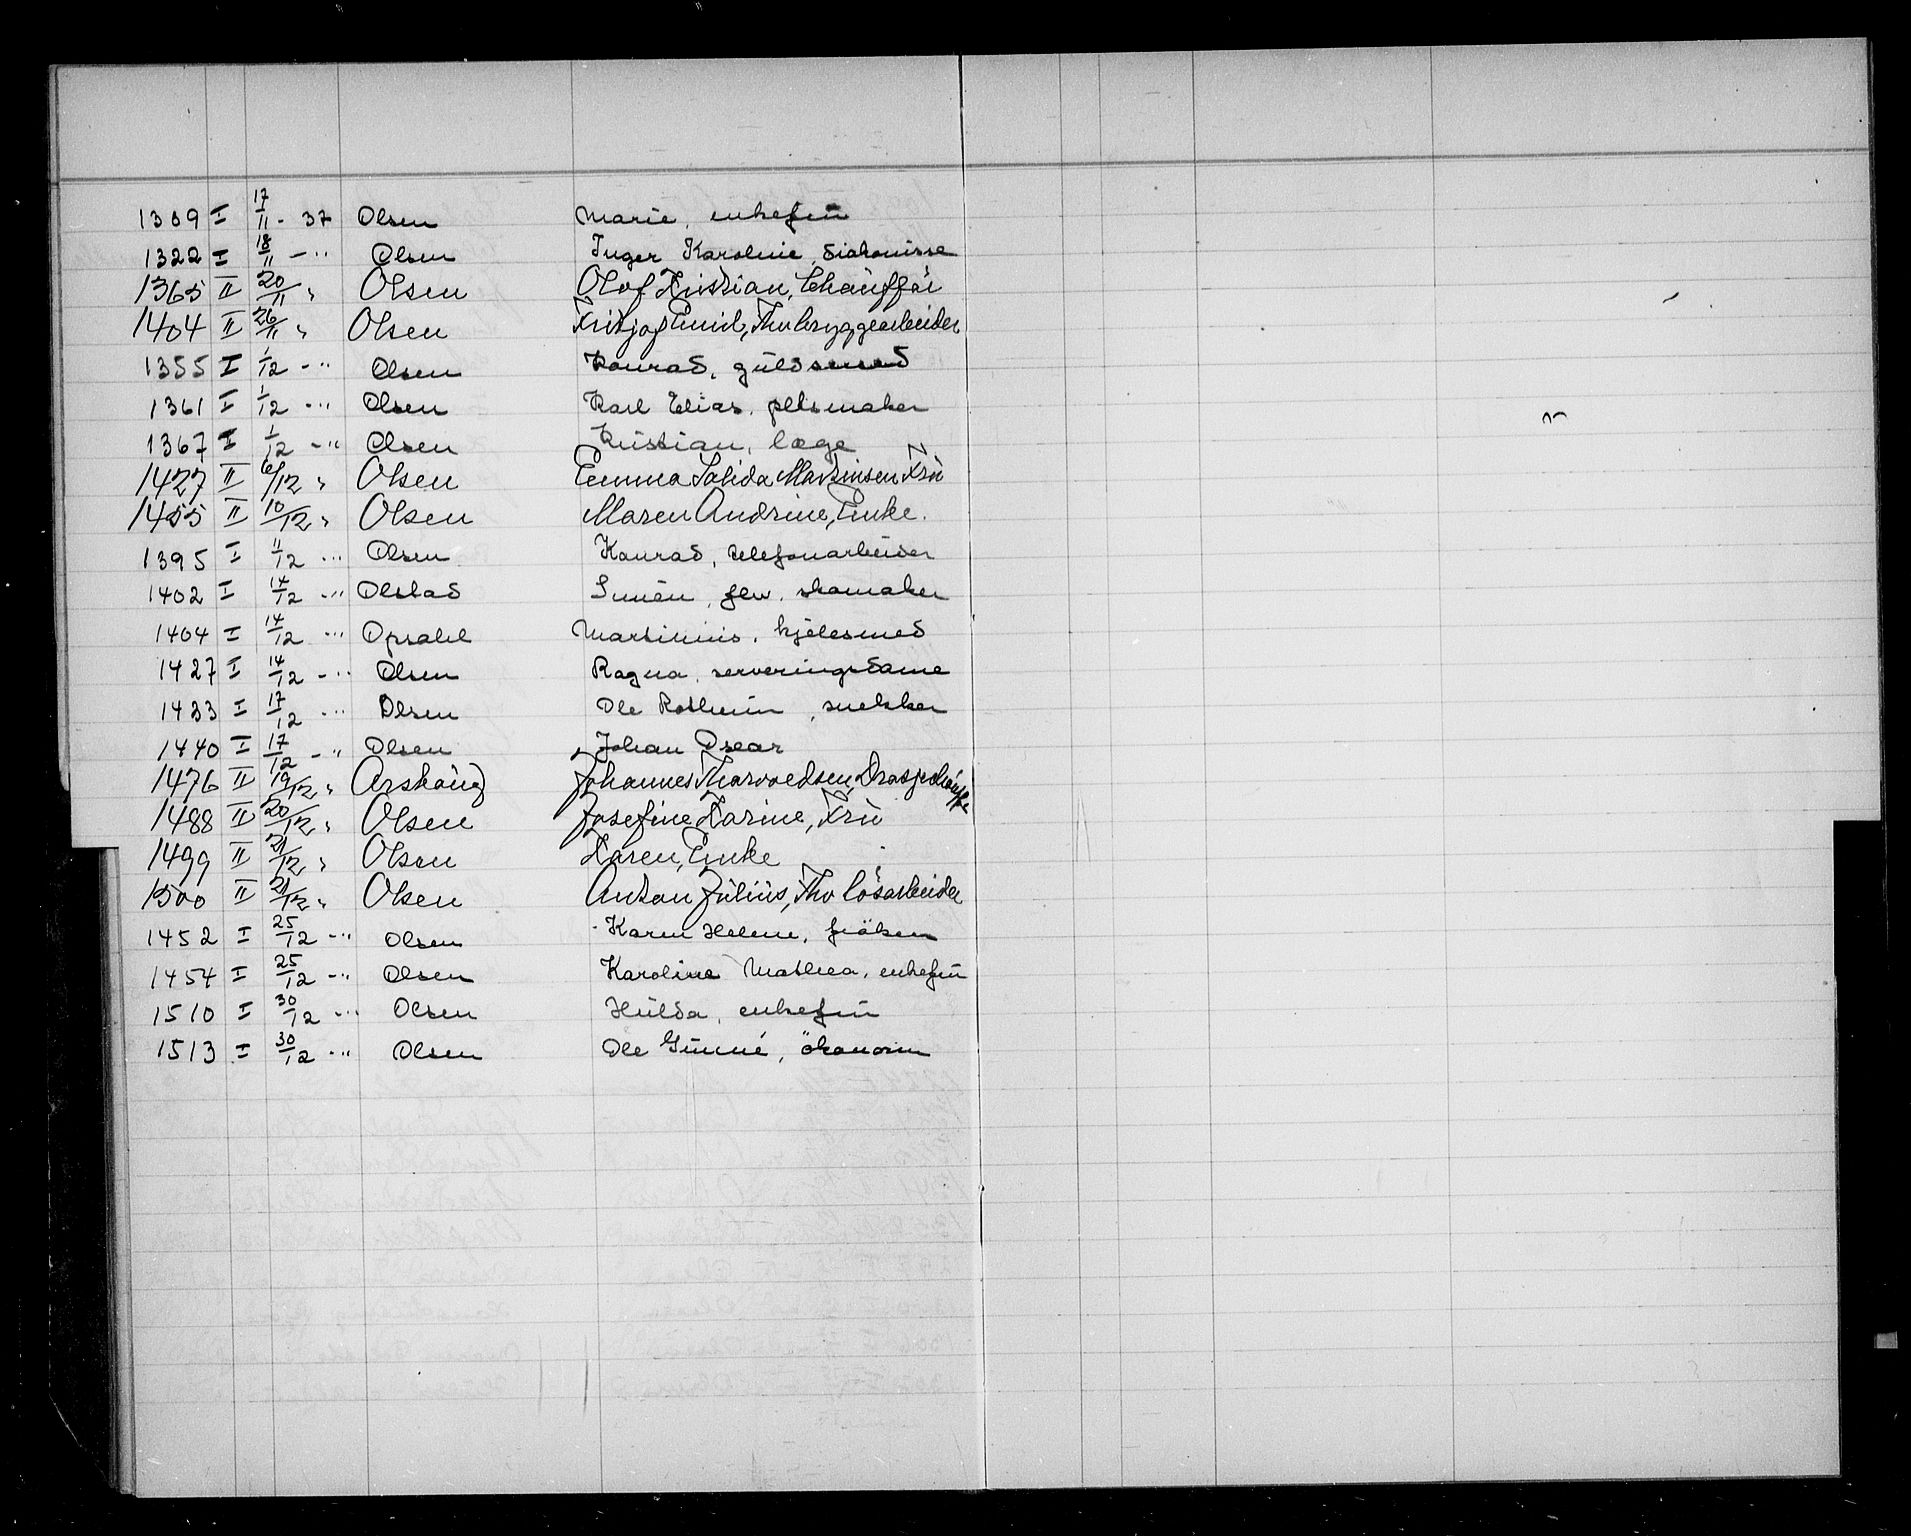 1309 I 17/11 - 37 Olsen Marie, enkefru
1322 I 18/11 - " Olsen Inger Karoline, diakonisse
1365 II 20/11 " Olsen Olof Kristian, Chauffør
1404 II 26/11 " Olsen Fritjof Emil, Fhv bryggearbeider
1355 I 1/12 - " Olsen Konrad, guldsmed
1361 I 1/12 - " Olsen Karl Elias, peltsmaker
1367 I 1/12 - " Olsen Kristian, læge
1427 II 6/12 " Olsen Emma Martinsen Fru
1455 II 10/12 " Olsen Maren Andrine, Enke.
1395 I 11/12 - " Olsen Konrad, telefonarbeider
1402 I 14/12 - " Olstad skomaker
1404 I 14/12 - " Opsahl Martinius, kjelesmed
1427 I 14/12 - " Olsen Ragna, serveringsdame
1433 I 17/12 - " Olsen Ole, snekker
1440 I 17/12 - " Olsen Johan Oscar
1476 II 19/12 " Johannes Thorvaldsen, Drosjechauffør
1488 II 20/12 " Olsen Josefine Karine, Fru
1499 II 21/12 " Olsen Karen, Enke
1500 II 21/12 " Olsen Anton Julius, Fhv løsarbeider
1452 I 25/12 - " Olsen Karen Helene, frøken
1454 I 25/12 - " Olsen Karoline Mathea, enkefru
1510 I 30/12 - " Olsen Hulda, enkefru
1513 I 30/12 - " Olsen Ole, økonom